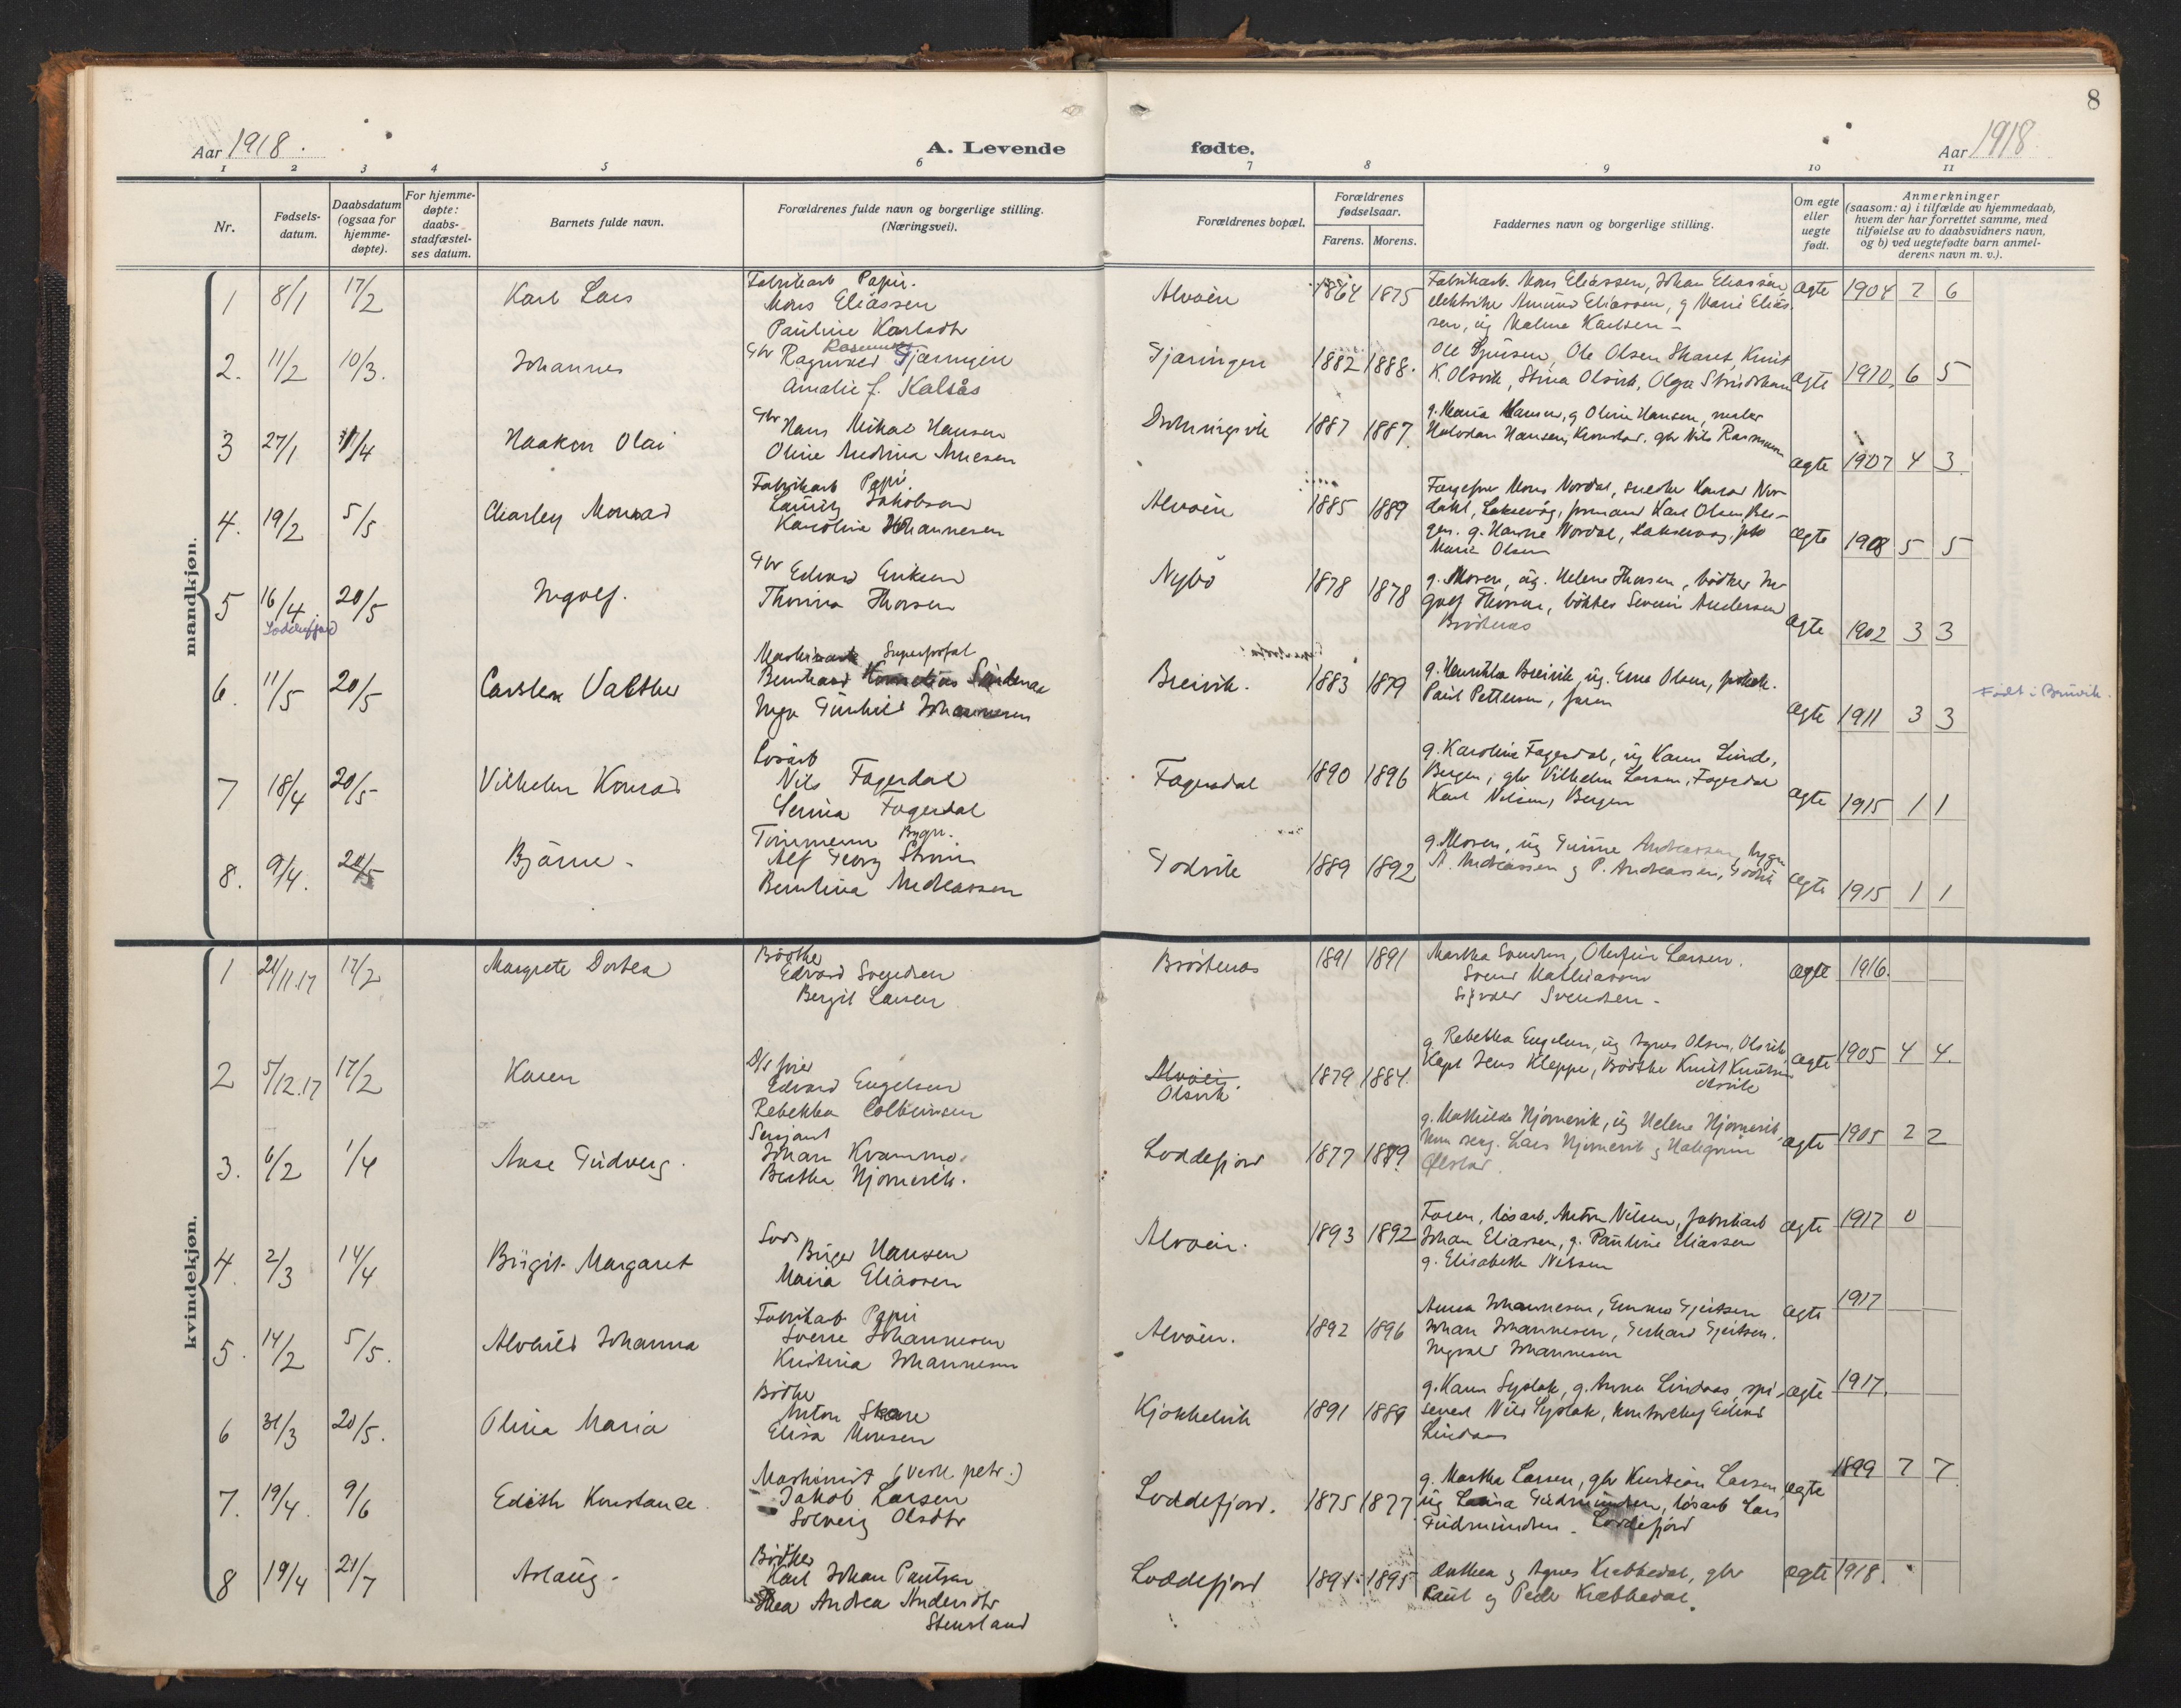 8
Aar 1918.
A. Levende
fødte.
Aar 1918
1 2 3 4 5 6 7 8 9 10 11
Nr.
Fødsels-
datum.
Daabsdatum
(ogsaa for
hjemme-
døpte).
For hjemme-
døpte:
daabs-
stadfæstel-
ses datum.
Barnets fulde navn.
Forældrenes fulde navn og borgerlige stilling.
(Næringsvei).
Forældrenes bopæl.
Forældrenes
fødselsaar.
Farens. Morens.
Faddernes navn og borgerlige stilling.
Om egte
eller
uegte
født.
Anmerkninger
(saasom: a) i tilfælde av hjemmedaab,
hvem der har forrettet samme, med
tilføielse av to daabsvidners navn,
og b) ved uegtefødte barn anmel-
derens navn m. v.).
mandkjøn.
1 8/1 17/2 Karl Lars
Fabrikarb Papir.
Mons Eliassen
Pauline Karlsdtr
Alvøen 1864 1875
Fabrikarb. Mons Eliassen, Johan Eliassen,
elektriker Amund Eliassen, g Marie Elias-
sen, ug Malene Karlsen -
ægte 1904 7 6
2. 11/2 10/3. Johannes
Gbr Ragnvald Rasmussen Gjæringen
Amalie f. Kalsås
Gjæringen 1882 1888.
Ole Olsen Skaret, Knut
K. Olsvik, Stina Olsvik, Olga
ægte 1910 6 5
3 27/1 1/4 Haakon Olai
Gbr Hans Mikal Hansen
Oline Andrina
Drotningsvik 1887 1887
g. Maria Hansen, g Oline Hansen, maler
Halvdan Hansen, gbr Nils Rasmussen
ægte 1907 4 3.
4. 19/2 5/5 Charley Monrad
Fabrikarb Papir
Lauritz Jakobsen
Karoline Johannesen
Alvøen 1885 1889
Mons Nordal, snedker Konrad Nor-
dahl, Laksevåg, formand Karl Olsen, Ber-
gen. g. Hanna Nordal, Laksevaag, frk
Marie Olsen
ægte 1908 5 5
5 16/4. 20/5 Ingolf.
Loddefjord
Gbr Edvard Eriksen
Thorina Thorsen
Nybø 1878 1878
g. Moren, ug. Helene Thorsen, bødker In-
golf Thorsen, bødker Severin Andersen
Brøstenes
ægte 1902 3 3
6. 11/5 20/5 Carsten Valther
Superfosfat
Bernhard
Inga Gunhild Johannesen
Breivik. 1883 1879
g. Henrikka Breivik, ug. Erna Olsen,
Paul Pettersen, faren
ægte 1911 3 3
Født i Bruvik.
7 18/4 20/5 Vilhelm Konrad
Løsarb
Nils Fagerdal
Serina Fagerdal
Fagerdal 1890 1896
g. Karoline Fagerdal, ug Karen Lund,
Bergen, gbr Vilhelm Larsen, Fagerdal
Karl Nilsen, Bergen
ægte 1915 1 1
8. 9/4. 20/5 Bjarne -
Tømmerm Bygn.
Alf Georg Strøm
Berntina Andreassen
Godvik 1889 1892
g. Moren, ug Andreassen,
A. Andreassen g P. Andreassen, Godvik
ægte 1915 1 1
kvindekjøn.
1 21/11.17 17/2 Margrete Dortea
Bødker
Edvard Svendsen
Bergit Larsen
Brøstenes 1891 1891
Martha Svendsen, Olufine Larsen.
Svend Mathiasen
Sigvald Svendsen -
ægte 1916.
2 5/12.17 17/2 Karen
D/s fører
Edvard Engelsen
Rebekka Colbeinsen
Alvøen.
Olsvik 1879 1884.
g. Rebekka Engelsen, ug Agnes Olsen, Olsvik,
Kapt Jens Kleppe, Bødker Knut Knutsen
Olsvik
ægte 1905 4 4.
3. 6/2 1/4 Aase Gudveig.
Sersjant
Johan Kvamme
Bertha Njømerik.
Loddefjord 1877 1889
g. Mathilde Njømerik, ug Helene Njømerik,
serg. Lars Njømerik g Halgrim
ægte 1905 2 2
4. 2/3 14/4 Birgit Margaret
Lods
Birger Hansen
Maria Eliassen
Alvøen. 1893 1892
Faren, løsarb. Anton Nilsen, fabrikarb
Johan Eliassen, g. Pauline Eliassen
g. Elisabeth Nilsen
ægte 1917 0
5. 14/2 5/5. Alvhild Johanna
Fabrikarb Papir
Sverre Johannesen
Kristina Johannesen
Alvøen. 1892 1896
Anna Johannesen, Emma Gjertsen
Johan Johannesen, Gerhard Gjertsen.
Ingvald Johannesen
ægte 1917
6 31/3 20/5. Olina Maria
Bødker
Anton Skare
Elisa Monsen
Kjøkkelvik 1891 1889
g. Karen Syslak, g. Anna Lindaas,
Nils Syslak, Edvard
Lindaas
ægte 1917.
7. 19/4. 9/6 Edith Konstance.
Maskinist (Verk. petr.)
Jakob Larsen
Solveig Olsdtr
Loddefjord. 1875 1877
g. Martha Larsen, gbr Kristian Larsen
ug Laura Gudmundsen, løsarb Lars
Gudmundsen - Loddefjord
ægte 1899 7 7
8 19/4 21/7 Aslaug.
Bødker
Karl Johan Paulsen
Thea Andrea Andersdtr
Stensland
Loddefjord 1891. 1895
Anthea g Agnes Krabbedal, gbr
Paul g Peder Krabbedal.
ægte 1918.